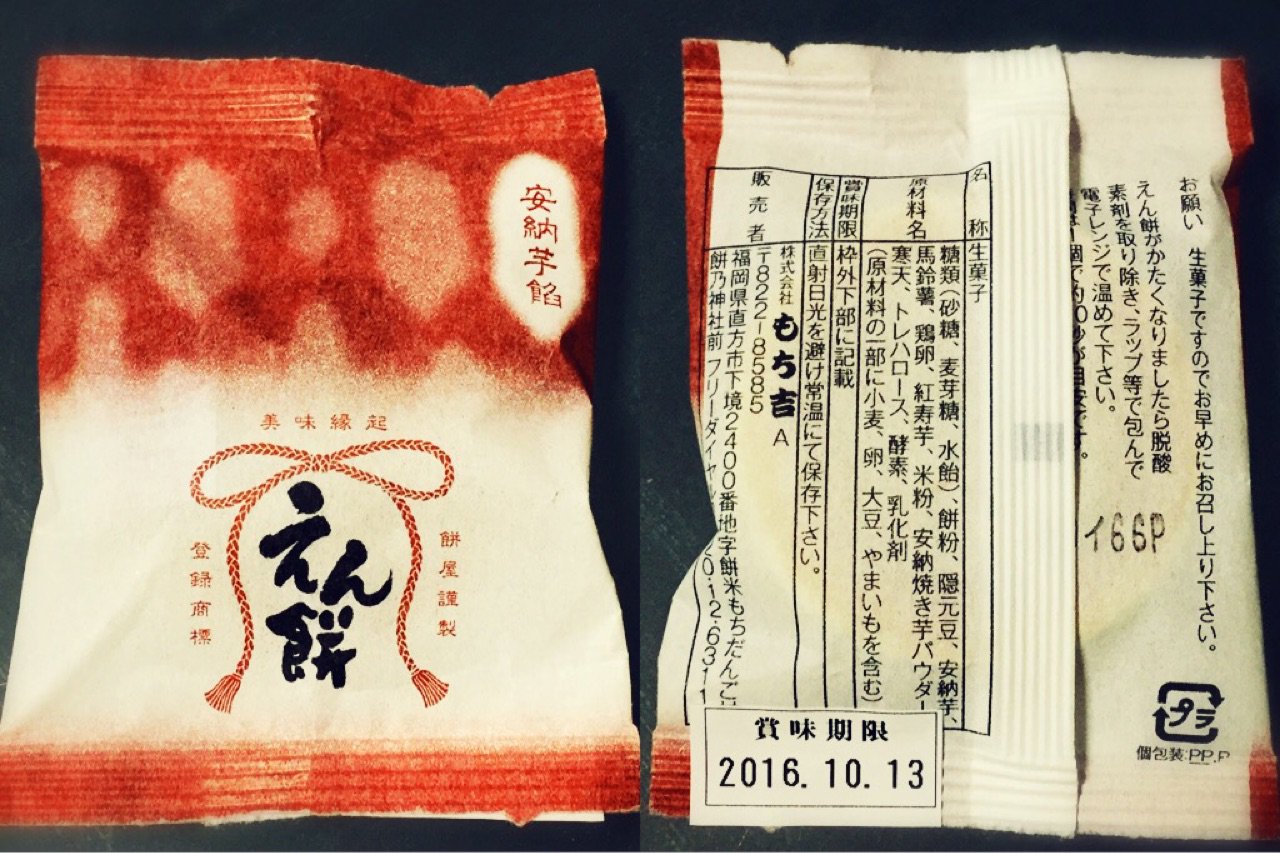 安納芋餡
美味縁起
えん餅
餅屋謹製
登録商標
お願い 生菓子ですのでお早めにお召し上り下さい。
えん餅がかたくなりましたら脱酸
素剤を取り除き、ラップ等で包んで
電子レンジで温めて下さい。
1個で約10秒が目安です。
イ66P
プラ
個包装:PP,P
名称 生菓子
原材料名 糖類(砂糖、麦芽糖、水飴)、餅粉、隠元豆、安納芋、
馬鈴薯、鶏卵、紅寿芋、米粉、安納焼き芋パウダー、
寒天、トレハロース、酵素、乳化剤
(原材料の一部に小麦、卵、大豆、やまいもを含む)
賞味期限 枠外下部に記載
保存方法 直射日光を避け常温にて保存下さい。
販売者 株式会社 もち吉 A
〒822-8585
福岡県直方市下境2400番地字餅米もちだんご
餅乃神社前 フリーダイヤ
賞味期限
2016.10.13